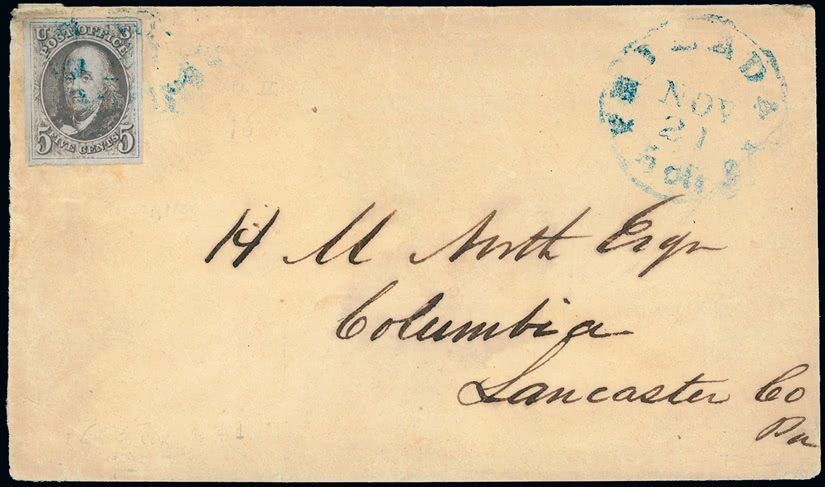 U S
POST OFFICE
5 FIVE CENTS 5
PHILADA
NOV
21
5 cts
H M North Esqr
Columbia
Lancaster Co
Pa